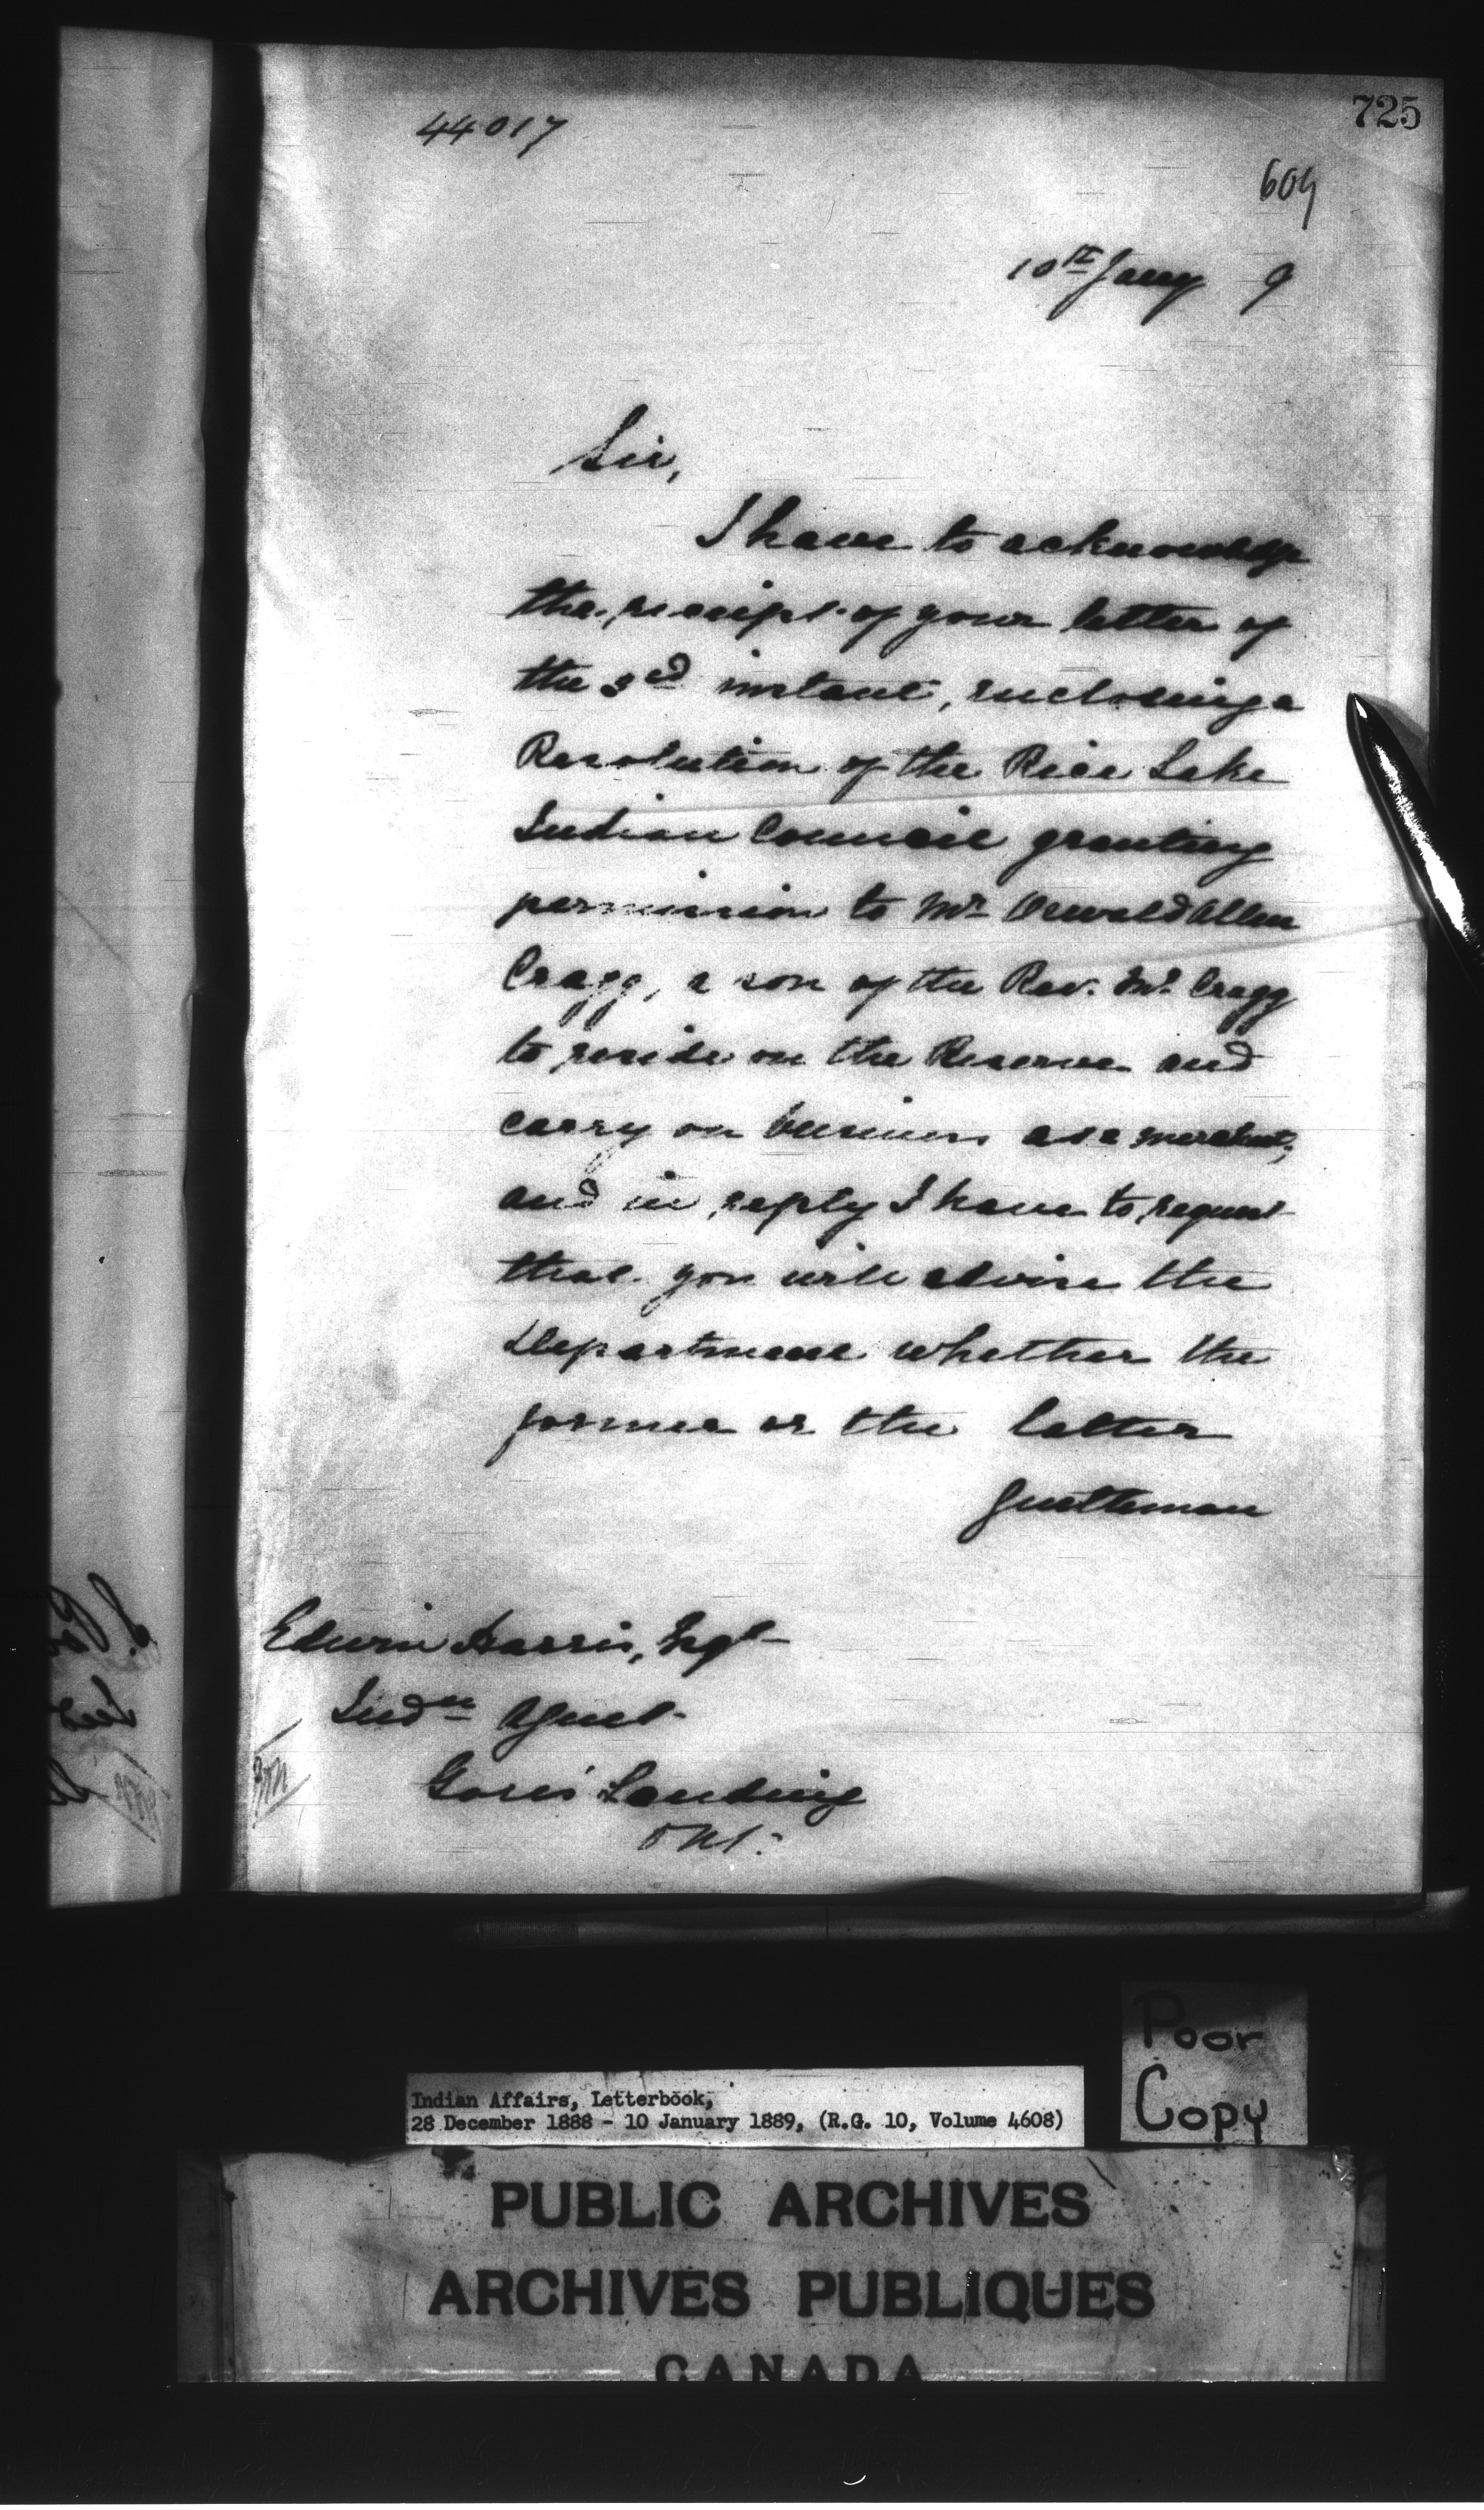 725
44017
609
10th Jany 9
Sir,
I have to acknowledge
the receipt of your letter of
the 3rd instant, enclosing a
Resolution of the Rice Lake
Indian Council granting
permission to Mr Oswald Allen
Cragg, a son of the Rev. Mr Cragg
to reside on the Reserve and
carry on business as a merchant,
and in reply I have to request
that you will advise the
Department whether the
former or the latter
gentleman
Edwin Harris, Esqr
Indn Agent
Gores' Landing
Ont.
Poor
Copy
Indian Affairs, Letterbook,
28 December 1888 - 10 January 1889, (R.G. 10, Volume 4608)
PUBLIC ARCHIVES
ARCHIVES PUBLIQUES
CANADA